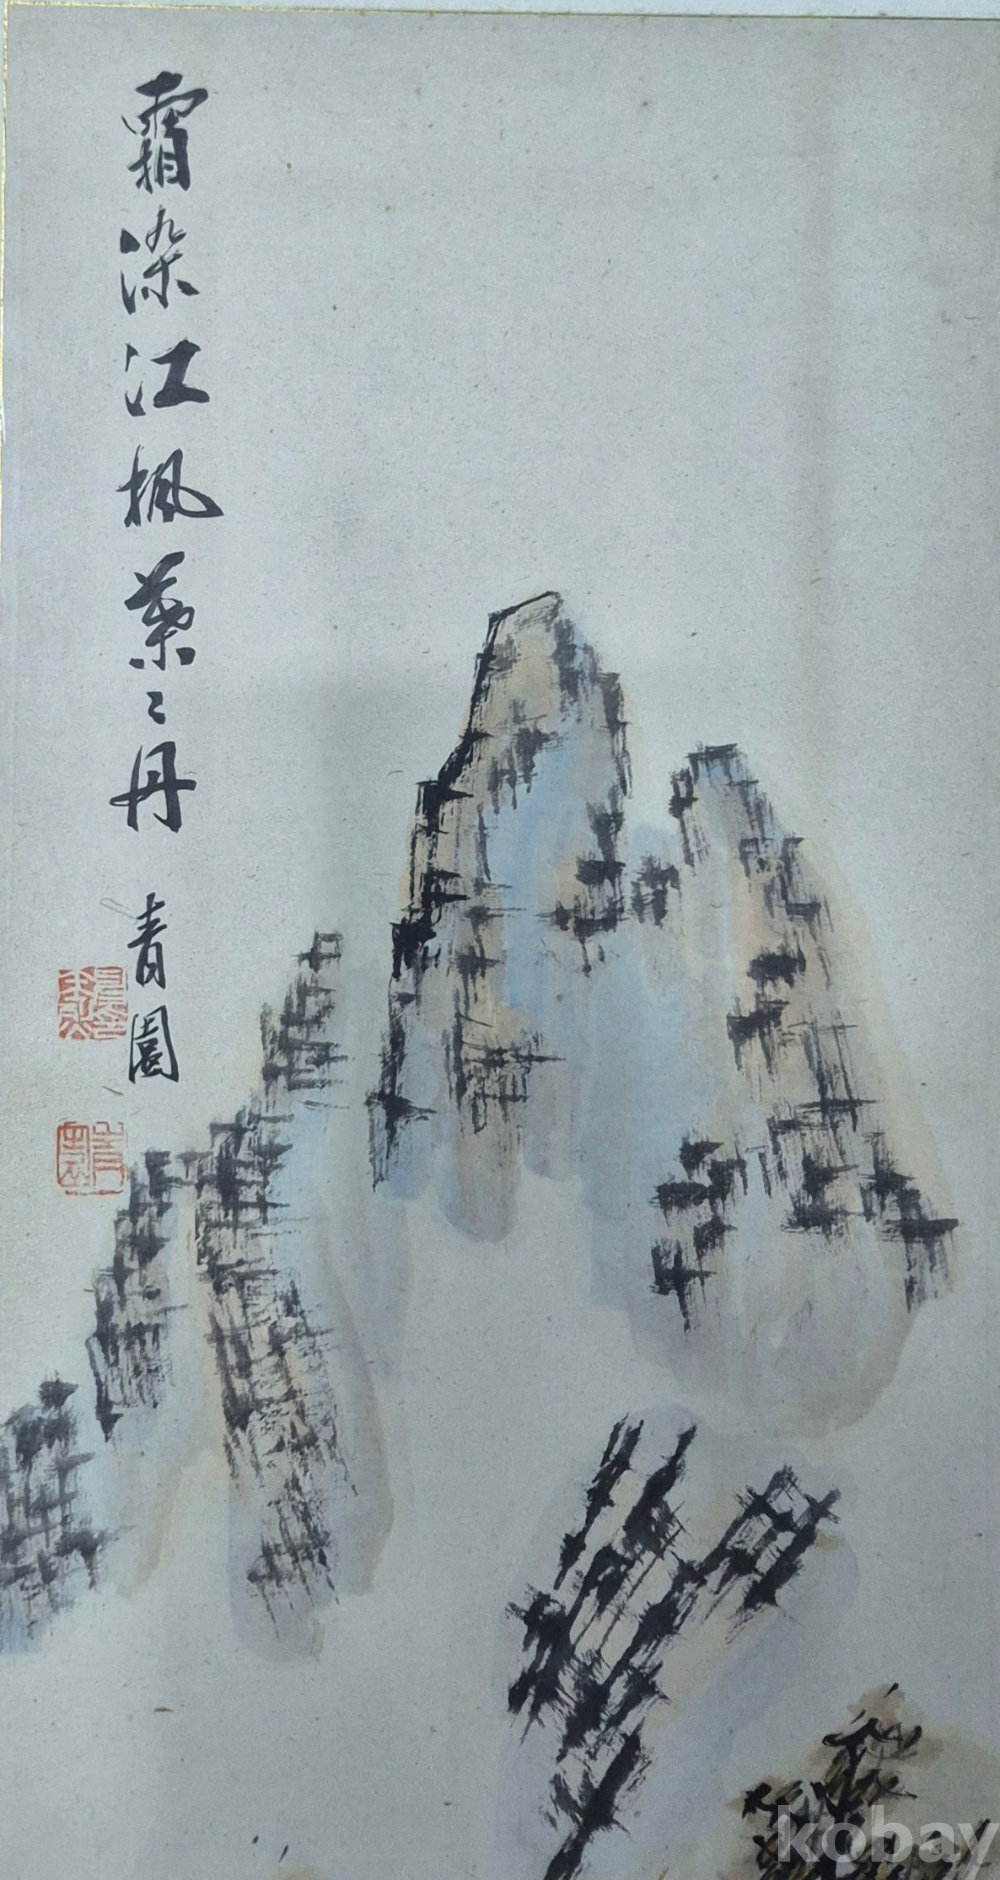 霜染江楓葉〻丹
青園
kobay